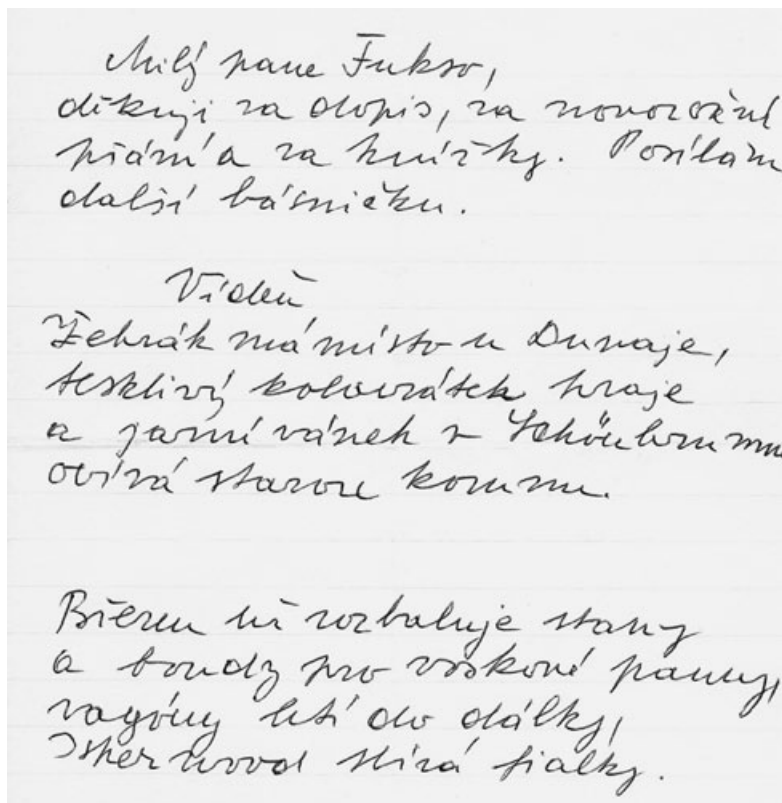 Milý pane Fukso,
děkuji za dopis, za novoroční
přání a za knížky. Posílám
další básničku.
Vídeň
Žebrák má místo u Dunaje,
tesklivý kolovrátek hraje
a jarní vánek v Schönbrunnu
ovívá starou korunu.
Březen už rozbaluje stany
a boudy pro voskové panny,
vagóny letí do dálky,
Isherwood sbírá fialky.